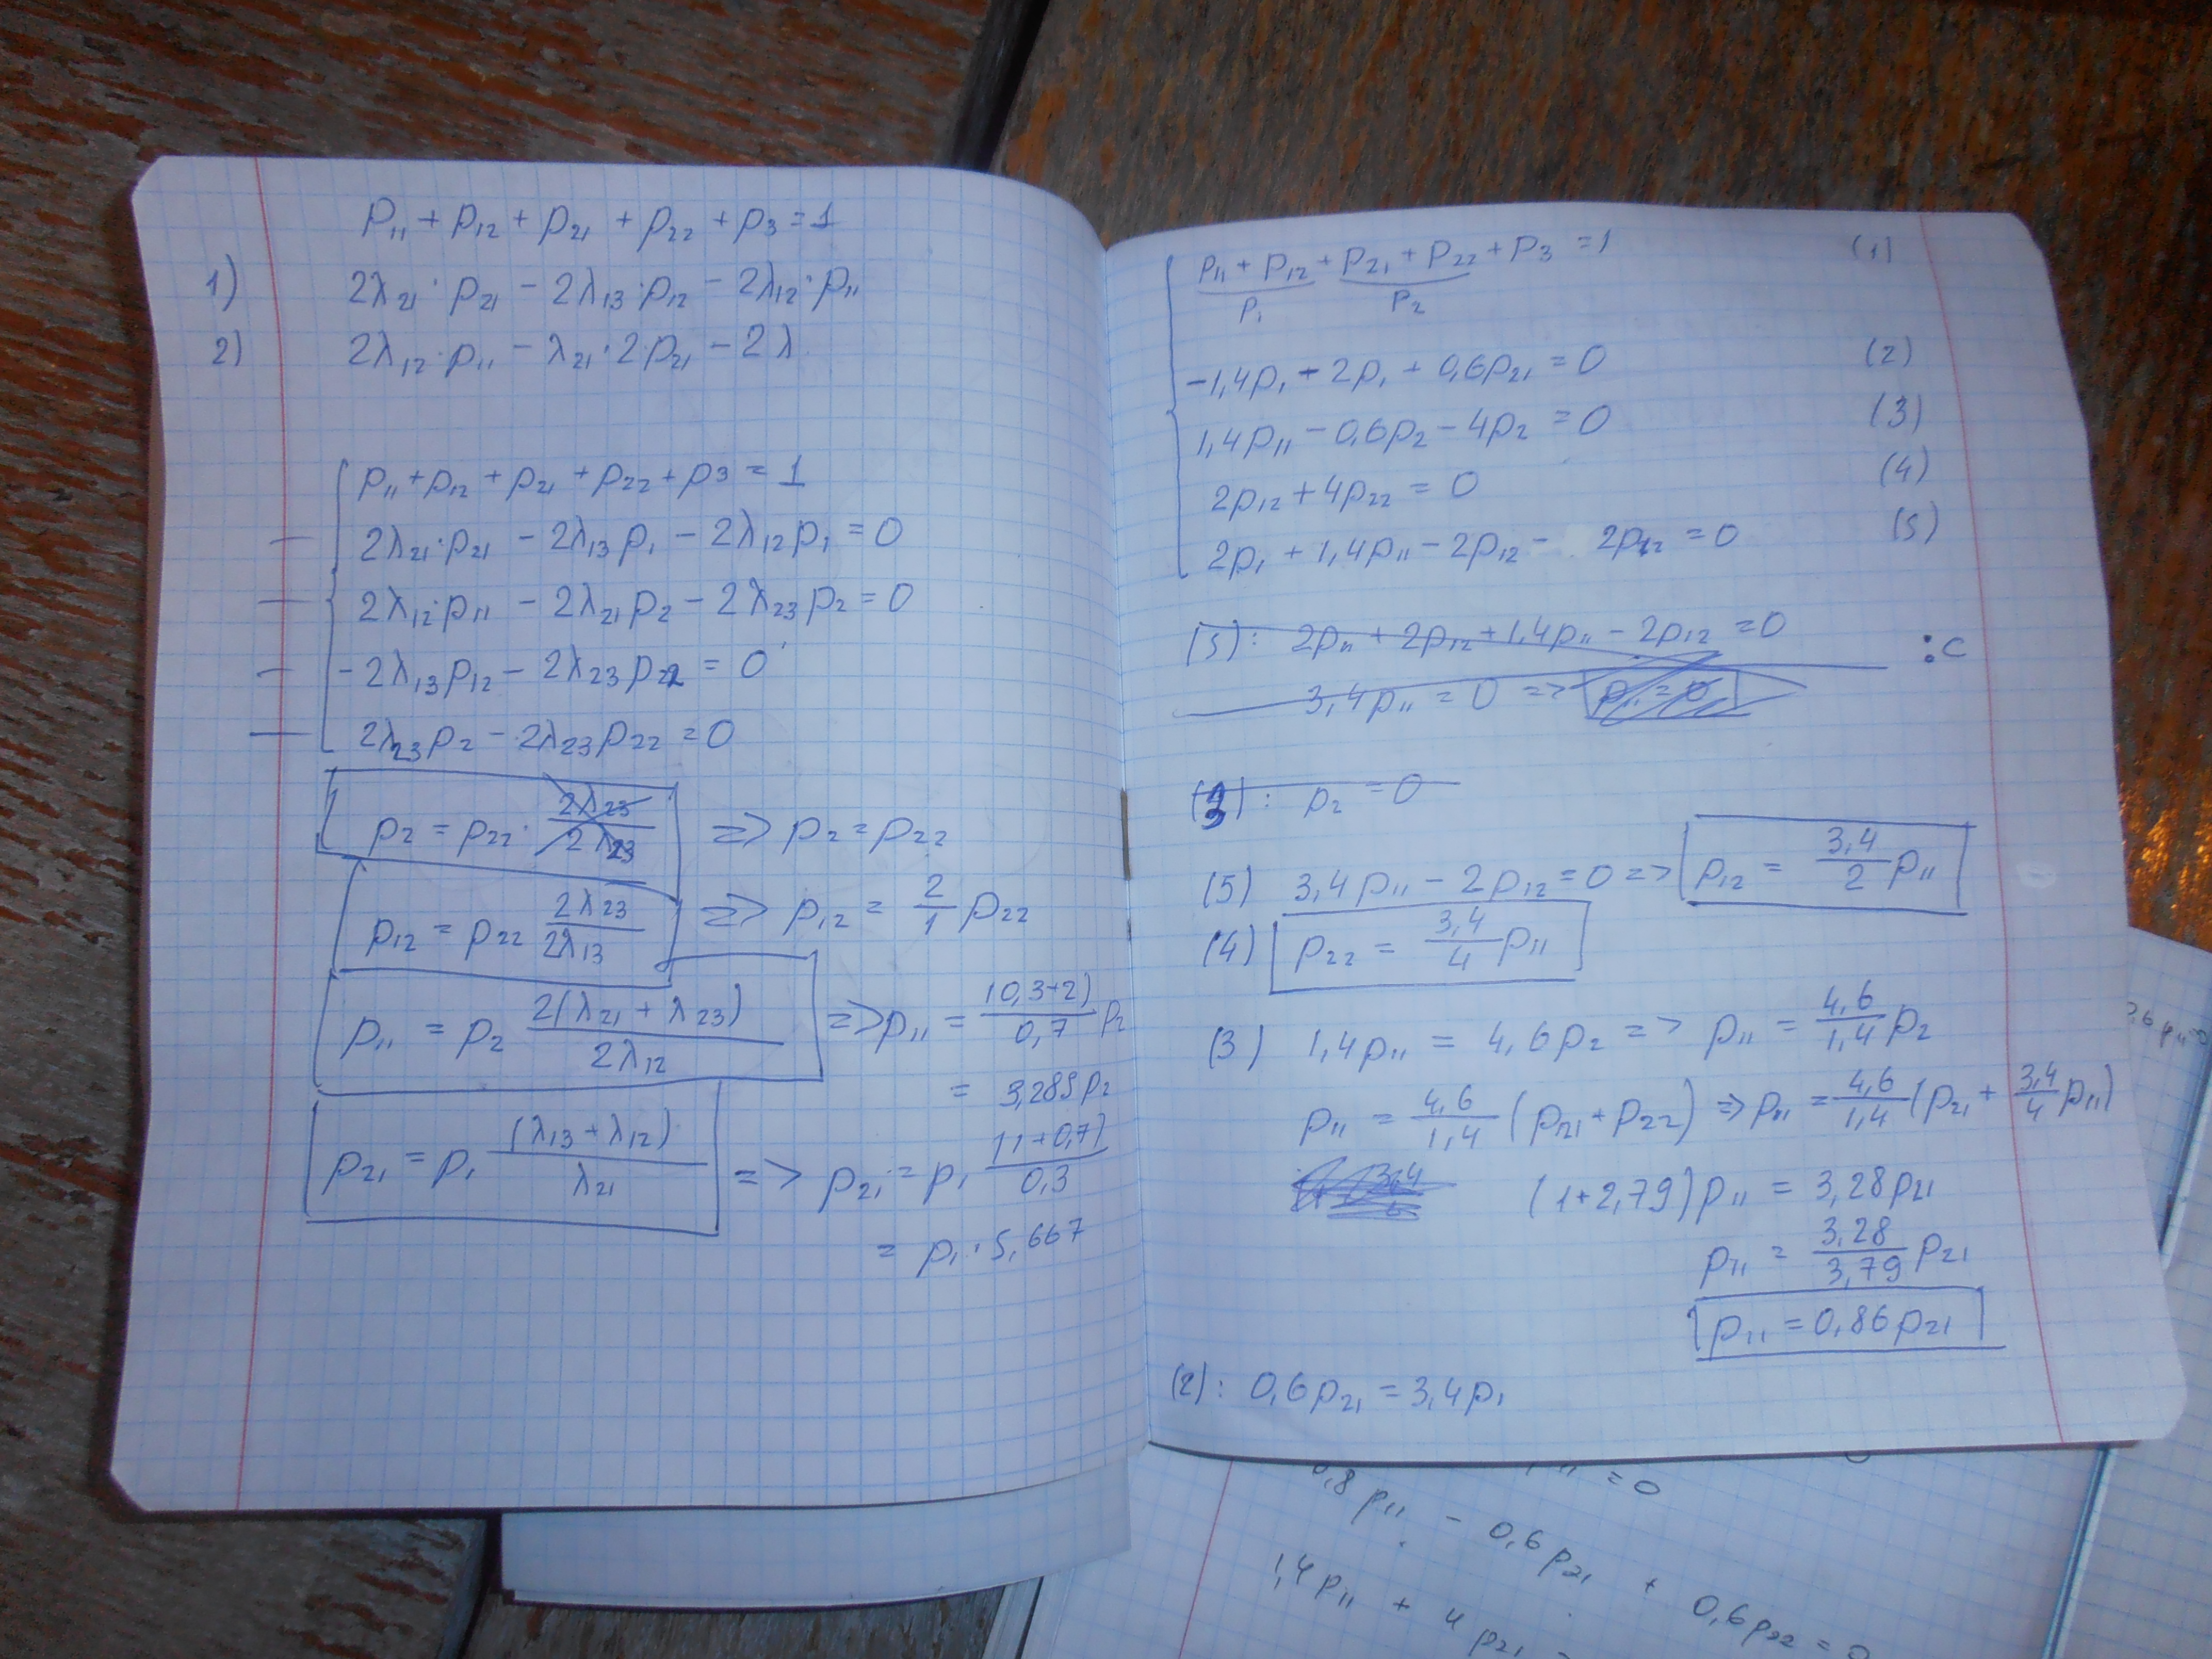 p₁₁ + p₁₂ + p₂₁ + p₂₂ + p₃ = 1
1) 2λ₂₁ · p₂₁ - 2λ₁₃ · p₁₂ - 2λ₁₂ · p₁₁
2) 2λ₁₂ · p₁₁ - λ₂₁ · 2 · p₂₁ - 2λ
p₁₁ + p₁₂ + p₂₁ + p₂₂ + p3 = 1
2λ₂₁ · p₂₁ - 2λ₁₃ p₁ - 2λ₁₂ p₁ = 0
2λ₁₂ · p₁₁ - 2λ₂₁ p₂ - 2λ₂₃ p₂ = 0
- 2λ₁₃ p₁₂ - 2λ₂₃ p₂₂ = 0
2λ₂₃ p₂ - 2λ₂₃ p₂₂ = 0
p₂ = p₂₂ · 2λ₂₃ / 2λ₂₃ => p₂ = p₂₂
p₁₂ = p₂₂ 2λ₂₃ / 2λ₁₃ => p₁₂ = 2/1 p₂₂
p₁₁ = p₂ 2(λ₂₁ + λ₂₃) / 2λ₁₂ => p₁₁ = (0,3+2) / 0,7 p₂
= 3,289 p₂
p₂₁ = p₁ (λ₁₃ + λ₁₂) / λ₂₁ => p₂₁ = p₁ (1+0,7) / 0,3
= p₁ · 5,667
p₁₁ + p₁₂ + p₂₁ + p₂₂ + p₃ = 1 (1)
p₁ p₂
-1,4p₁ - 2p₁ + 0,6p₂₁ = 0 (2)
1,4p₁₁ - 0,6p₂ - 4p₂ = 0 (3)
2p₁₂ + 4p₂₂ = 0 (4)
2p₁ + 1,4p₁₁ - 2p₁₂ - 2p₁₂ = 0 (5)
(5): 2p₁₁ + 2p₁₂ + 1,4p₁₁ - 2p₁₂ = 0 :c
3,4p₁₁ = 0 =>
(3): p₂ = 0
(5) 3,4p₁₁ - 2p₁₂ = 0 => p₁₂ = 3,4/2 p₁₁
(4) p₂₂ = 3,4/4 p₁₁
(3) 1,4p₁₁ = 4,6p₂ => p₁₁ = 4,6/1,4 p₂
p₁₁ = 4,6/1,4 (p₂₁ + p₂₂) => p₁₁ = 4,6/1,4 (p₂₁ + 3,4/4 p₁₁)
(1+2,79) p₁₁ = 3,28p₂₁
p₁₁ = 3,28/3,79 p₂₁
p₁₁ = 0,86p₂₁
(2): 0,6p₂₁ = 3,4p₁
= 0
0,8 p₁₁ - 0,6p₂₁ + 0,6p₂₂ = 0
1,4p₁₁ + 4p₂₁